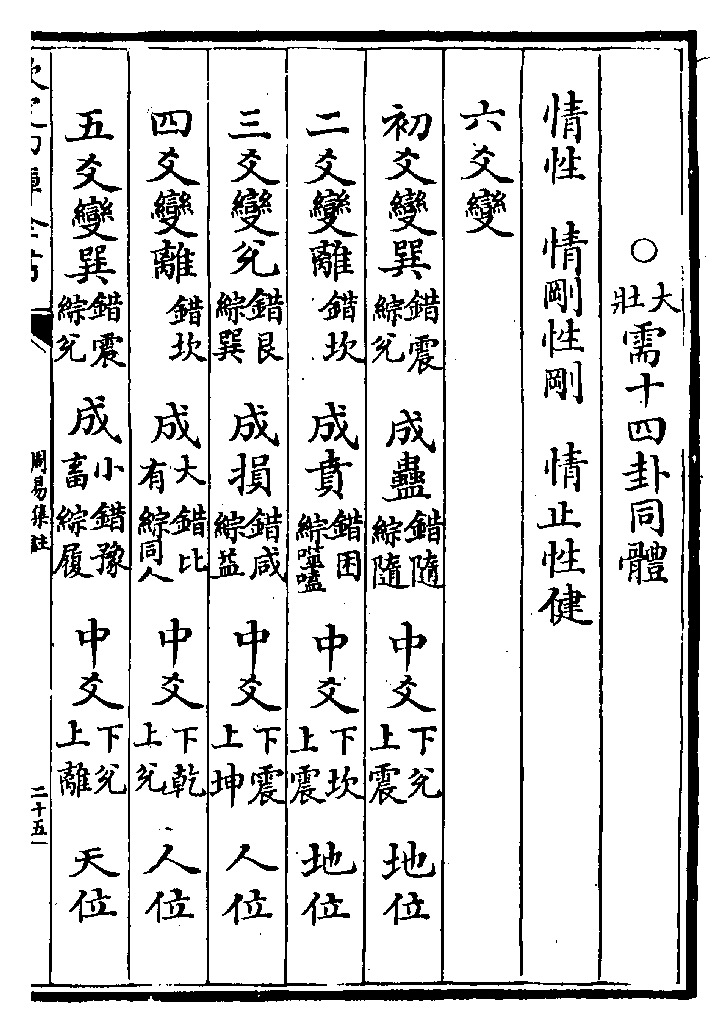 ○大壯需十四卦同體
情性　情剛性剛　情止性健
六爻變
初爻變巽錯震綜兊　成蠱錯隨綜隨　中爻下兊上震　地位
二爻變離錯坎　成賁錯困綜噬嗑　中爻下坎上震　地位
三爻變兊錯艮綜巽　成損錯咸綜益　中爻下震上坤　人位
四爻變離錯坎　成大有錯比綜同人　中爻下乾上兊　人位
五爻變巽錯震綜兊　成小畜錯豫綜履　中爻下兊上離　天位
周易集註
二十五